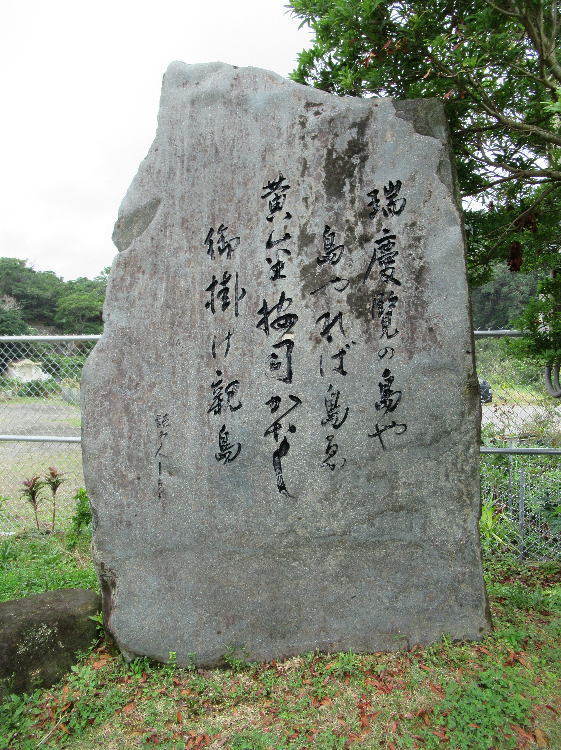 瑞慶覧の島や
島やれば島ゐ
黄金按司かなし
御掛け親島
詠み人しらず